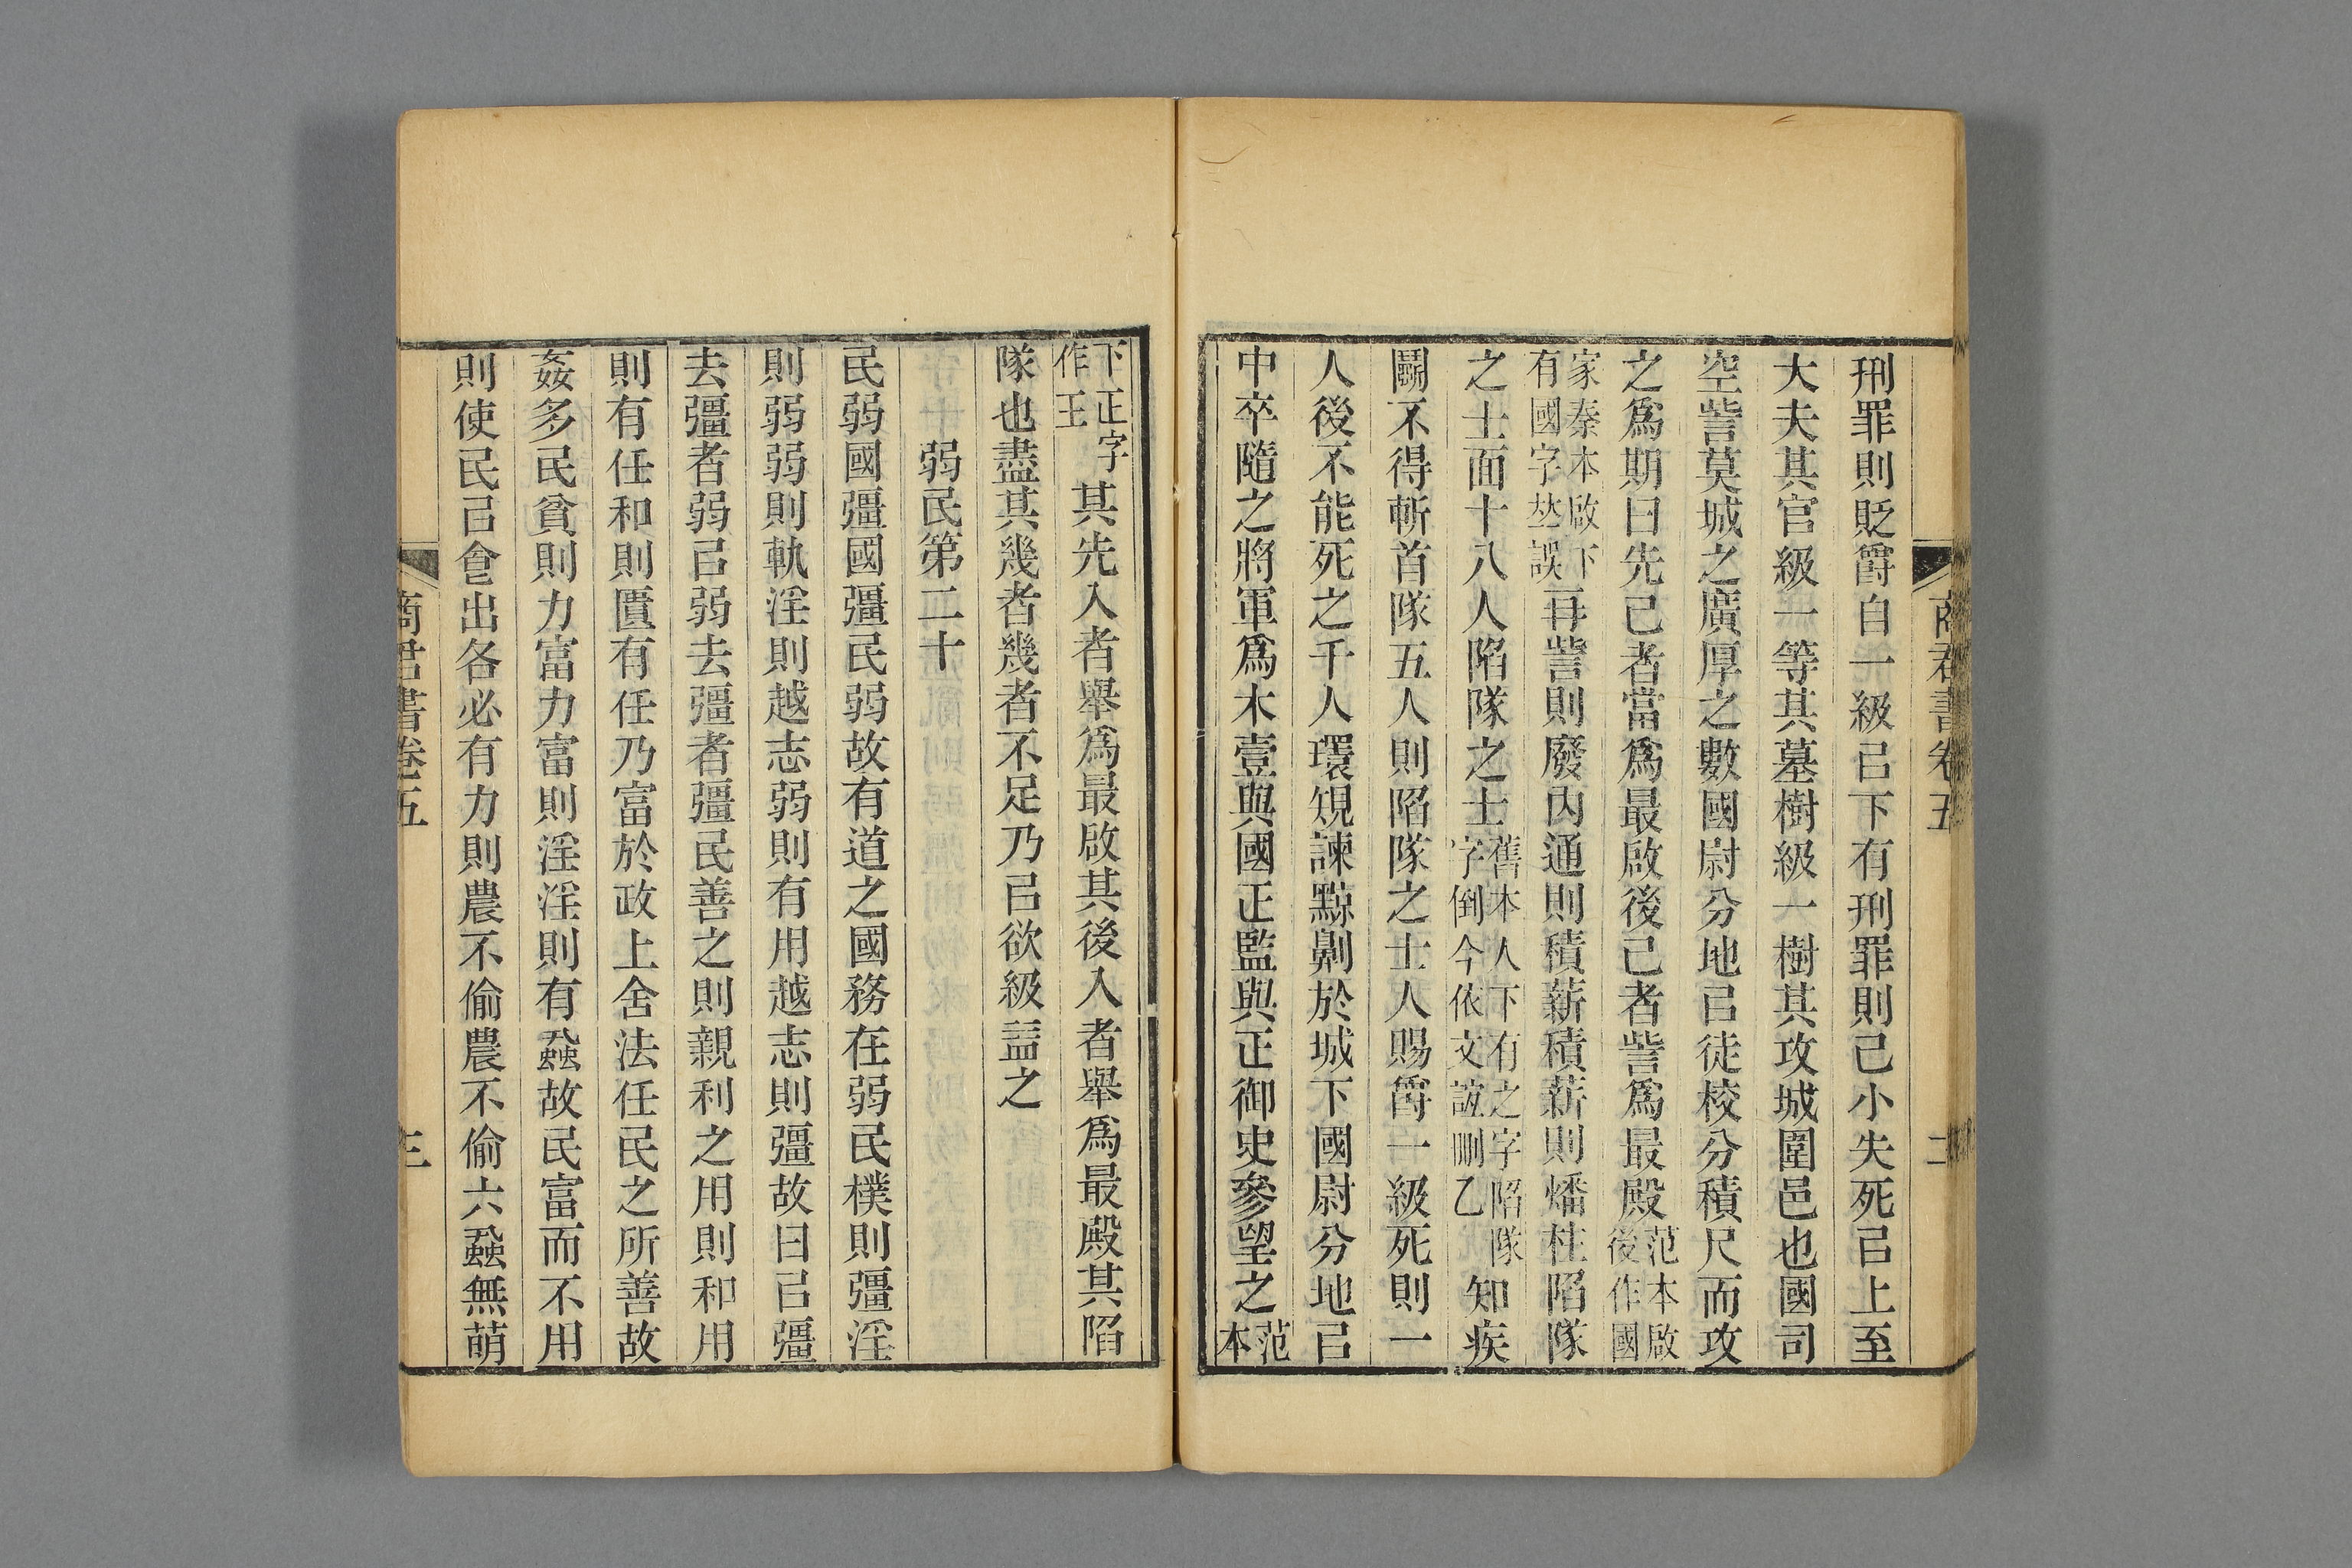 商君書卷五
二
刑罪則貶爵自一級㠯下有刑罪則已小失死㠯上至
大夫其官級一等其墓樹級一樹其攻城圍邑也國司
空訾莫城之廣厚之數國尉分地㠯徒校分積尺而攻
之爲期曰先已者當爲最啟後已者訾爲最殿范本啟後作國
家秦本啟下有國字𠀤誤再訾則廢内通則積薪積薪則燔柱陷隊
之士面十八人陷隊之士舊本人下有之字陷隊字倒今依文誼刪乙知疾
鬭不得斬首隊五人則陷隊之士人賜爵一級死則一
人後不能死之千人環䂓諫黥劓於城下國尉分地㠯
中卒隨之將軍爲木壹與國正監與正御史參望之范本
下正字作王其先入者舉爲最啟其後入者舉爲最殿其陷
隊也盡其幾者幾者不足乃㠯欲級益之
弱民第二十
民弱國彊國彊民弱故有道之國務在弱民樸則彊淫
則弱弱則軌淫則越志弱則有用越志則彊故曰㠯彊
去彊者弱㠯弱去彊者彊民善之則親利之用則和用
則有任和則匱有任乃富於政上舍法任民之所善故
姦多民貧則力富力富則淫淫則有蝨故民富而不用
則使民㠯食出各必有力則農不偷農不偷六蝨無萌
商君書卷五
三